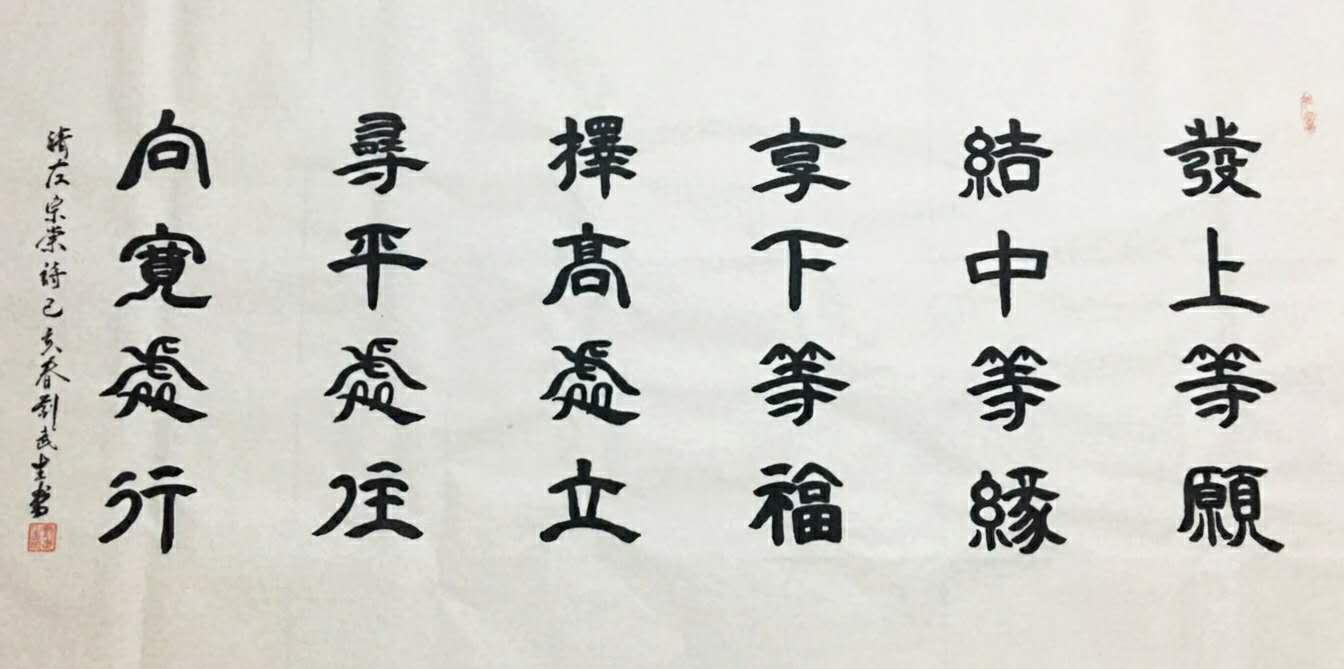 發上等願
結中等緣
享下等福
擇高處立
尋平處住
向寬處行
左宗棠詩己亥春劉武生書